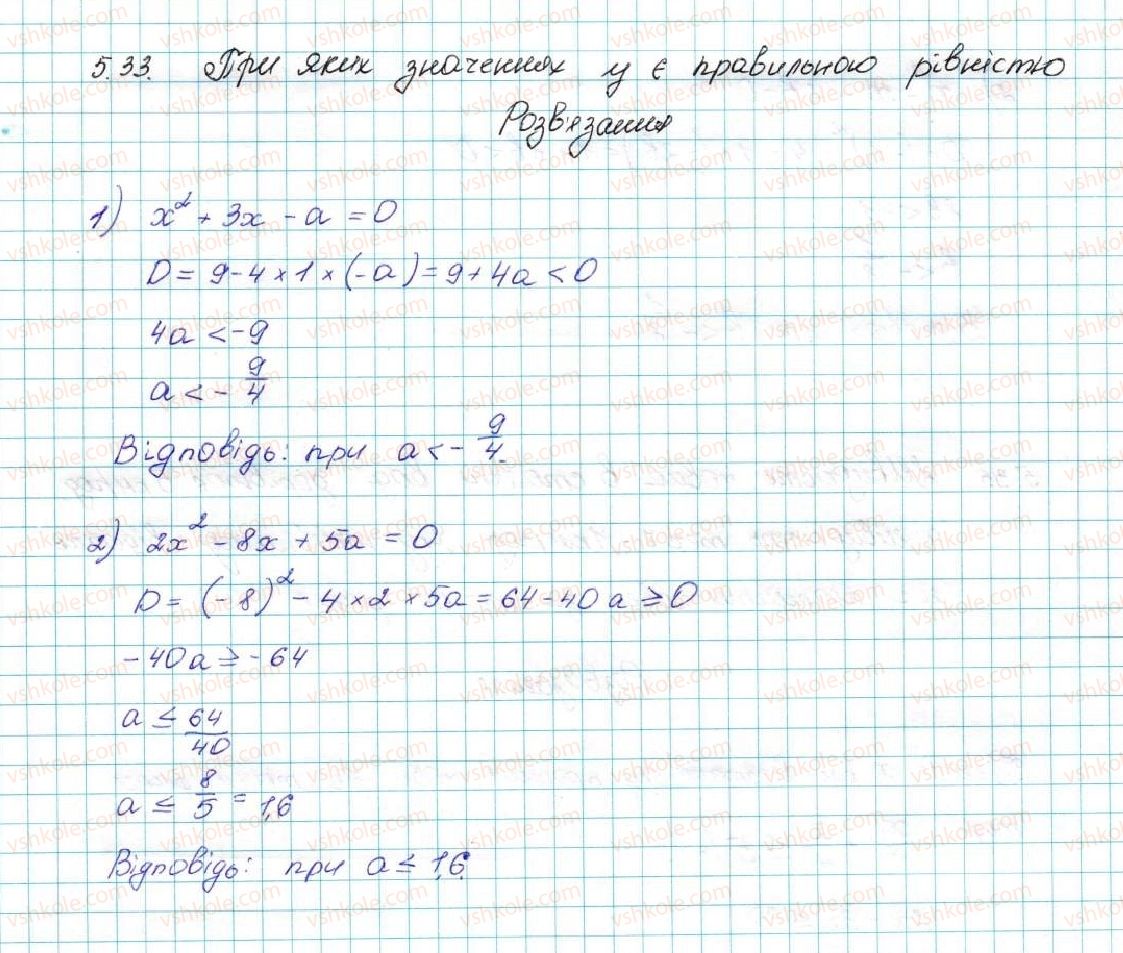 5.33. При яких значеннях y є правильною рівністю
Розв'язання
1) x² + 3x - a = 0
D = 9 - 4 × 1 × (-a) = 9 + 4a < 0
4a < -9
a < - 9/4
Відповідь: при a < - 9/4.
2) 2x² - 8x + 5a = 0
D = (-8)² - 4 × 2 × 5a = 64 - 40a ≥ 0
-40a ≥ -64
a ≤ 64/40
a ≤ 8/5 = 1,6
Відповідь: при a ≤ 1,6.